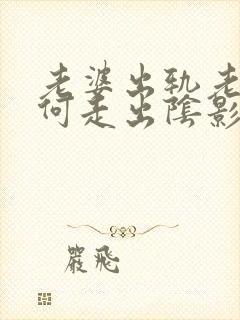 老婆出轨老
何走出陰影
嚴飛